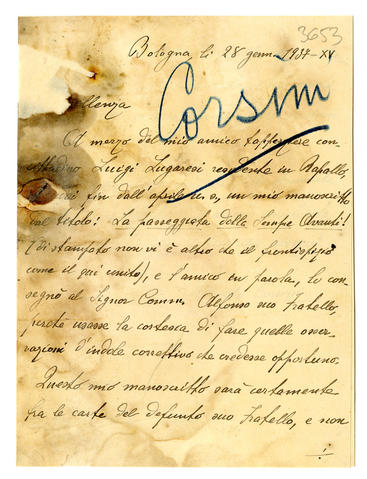 3653
Bologna li 28 genn. 1937-XV
Corsini
llenza
A mezzo del mio amico tappezziere con-
cittadino Luigi Lugaresi residente in Rapallo,
fin dall' un mio manoscritto
dal titolo: La passeggiata della Sempre Avanti!
(Di stampato non vi è altro che il frontispizio
come il qui unito), e l'amico in parola, lo con-
segnò al Signor Comm. Alfonso suo fratello,
perché usasse la cortesia di fare quelle osser-
vazioni d'indole correttiva che credesse opportuno.
Questo mio manoscritto sarà certamente
fra le carte del defunto suo fratello, e non